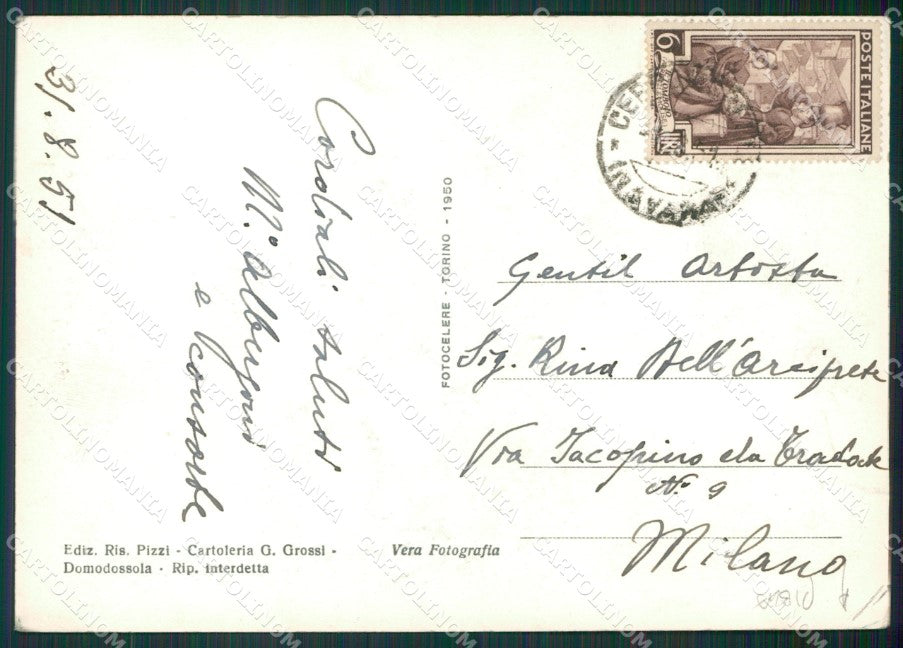 31.8.51
Cordiali saluti
M.º Albergoni
e consorte
FOTOCELERE - TORINO - 1950
POSTE ITALIANE
6
LIRE
Gentil Artista
Sig. Rina Dell'Arciprete
Via Jacopino da Tradate
Nº 9
Milano
Ediz. Ris. Pizzi - Cartoleria G. Grossi -
Domodossola - Rip. interdetta
Vera Fotografia
CARTOLINOMANIA